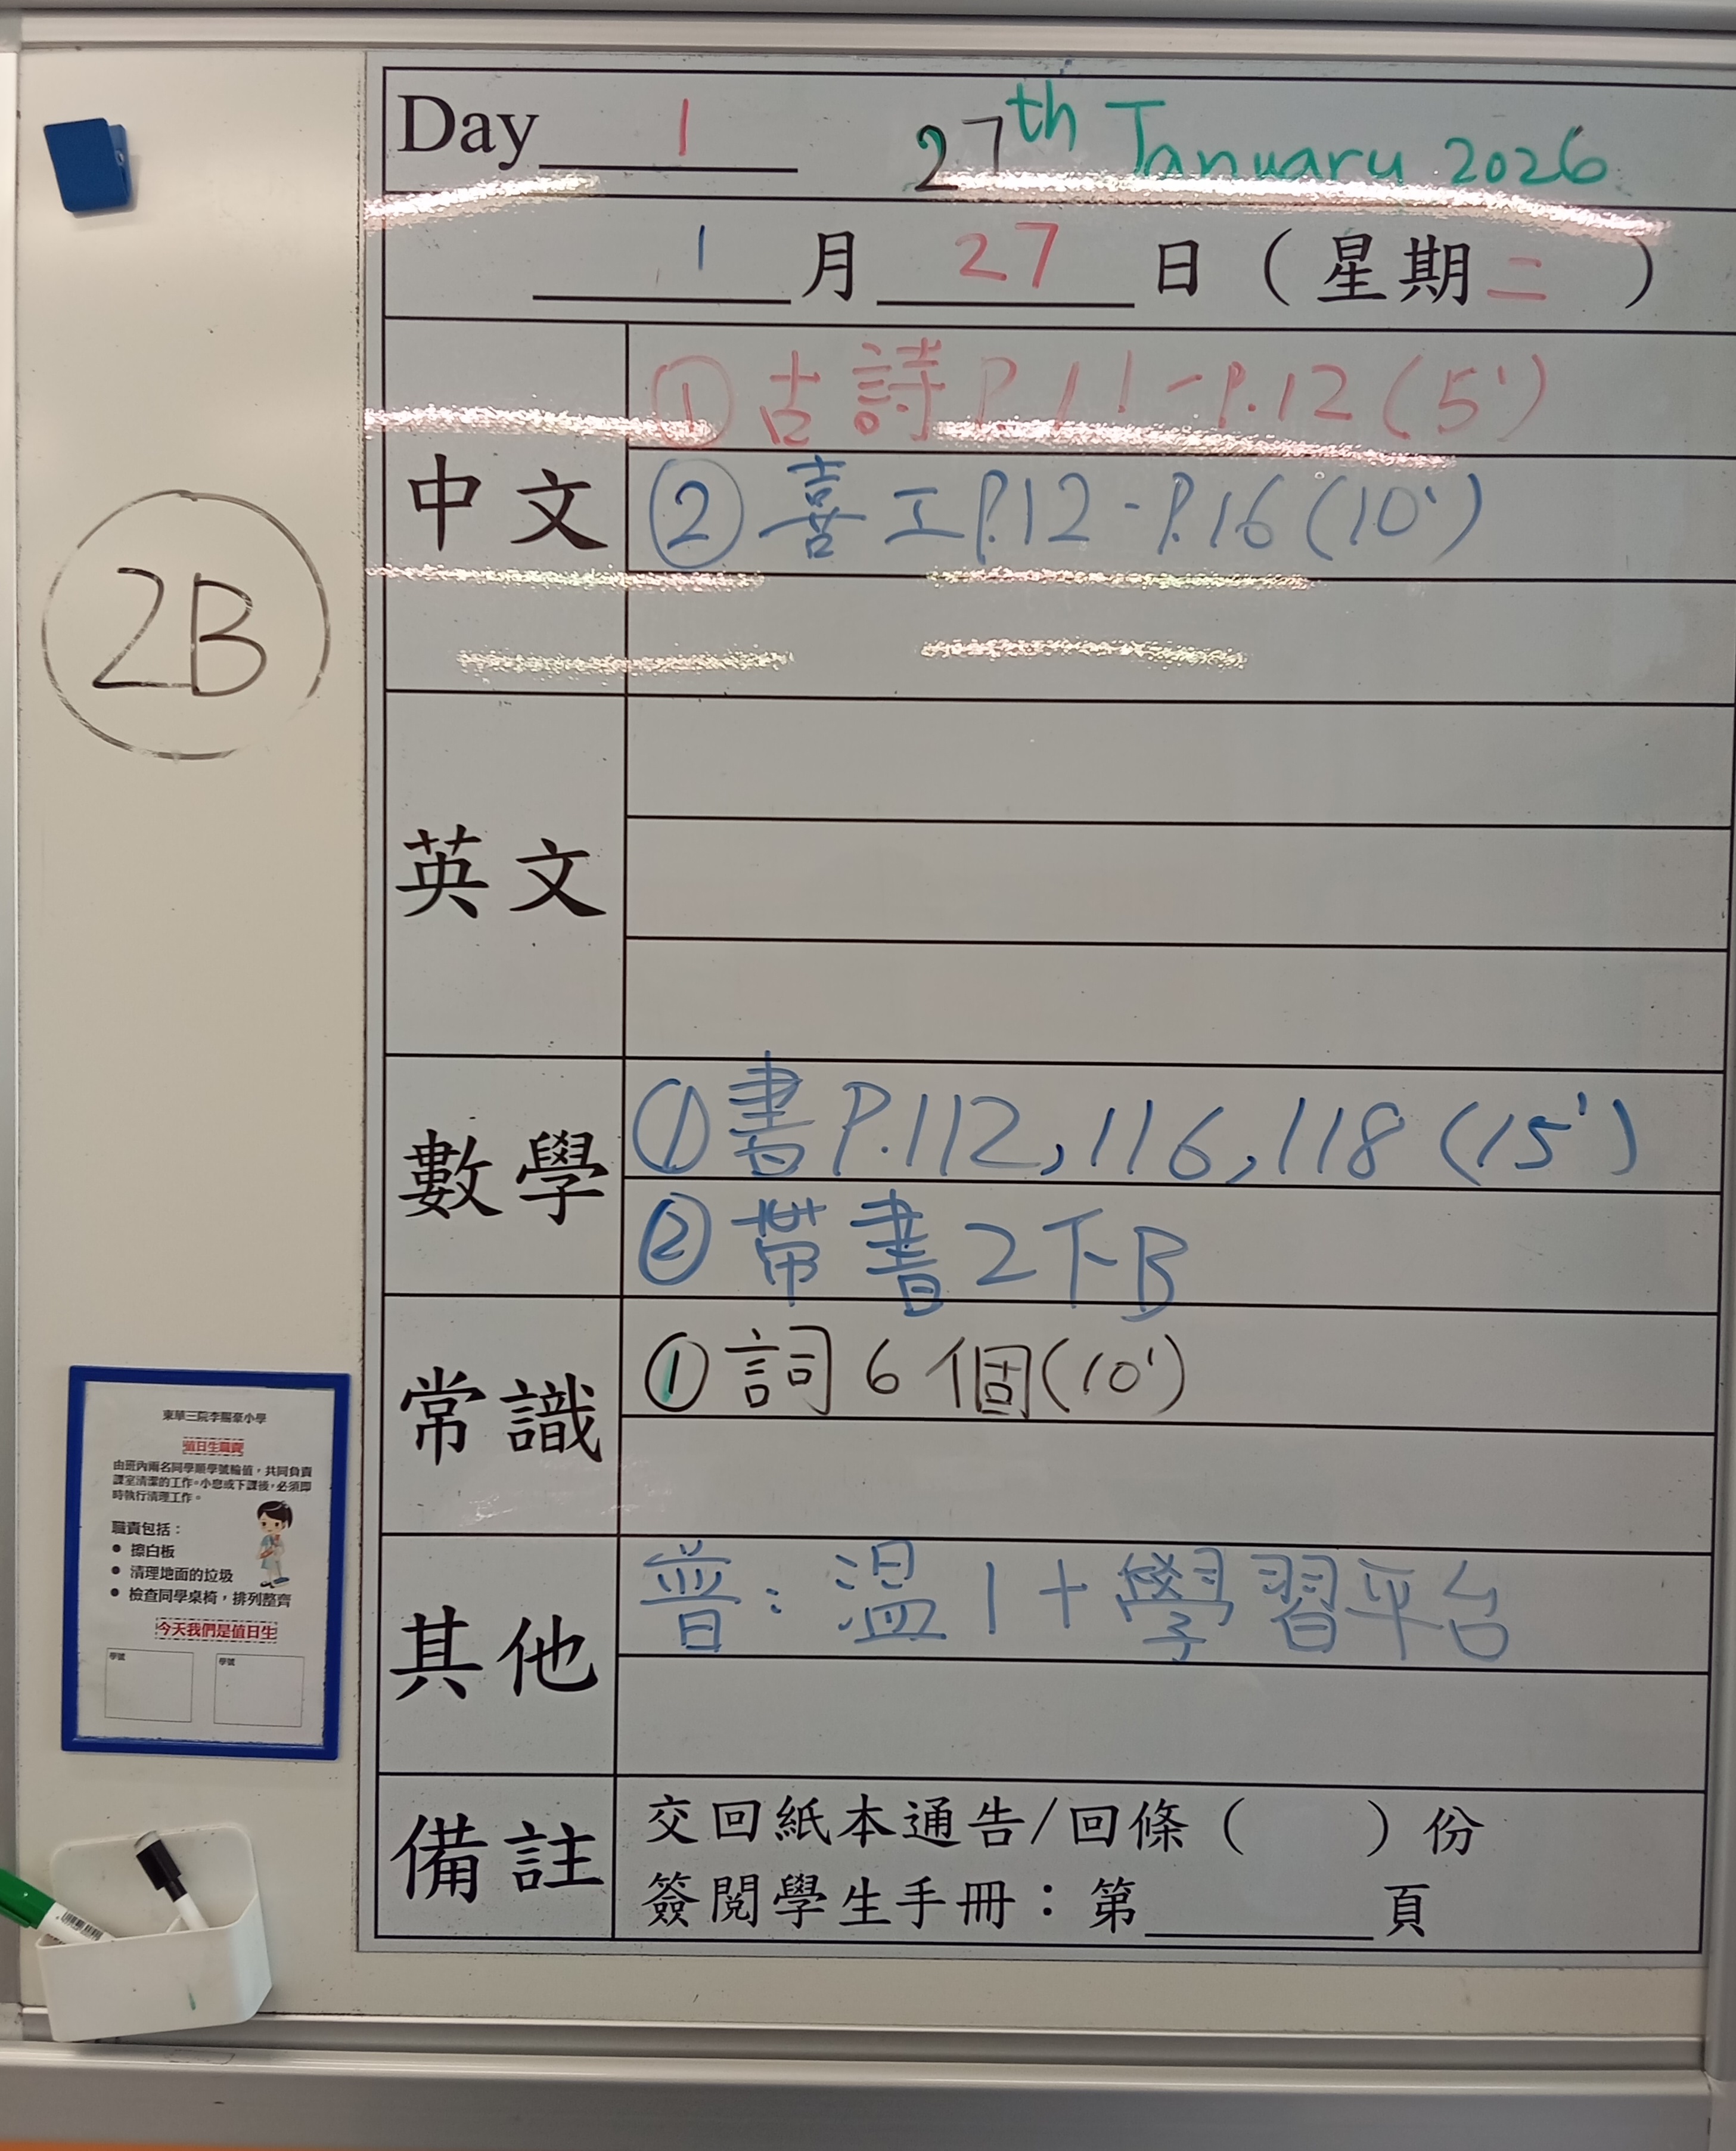 Day 1 27th January 2026
1 月 27 日 ( 星期二 )
中文
① 古詩 P.11-P.12 (5')
② 喜工 P.12-P.16 (10')
2B
英文
數學
① 書 P.112, 116, 118 (15')
② 帶書 2下B
常識
① 詞 6 個 (10')
東華三院李賜豪小學
值日生職責
由班內兩名同學順學號輪值，共同負責
課室清潔的工作。小息或下課後，必須即
時執行清理工作。
職責包括：
• 擦白板
• 清理地面的垃圾
• 檢查同學桌椅，排列整齊
今天我們是值日生
學號 學號
其他
普：溫 1 + 學習平台
備註
交回紙本通告/回條（ ）份
簽閱學生手冊：第 頁